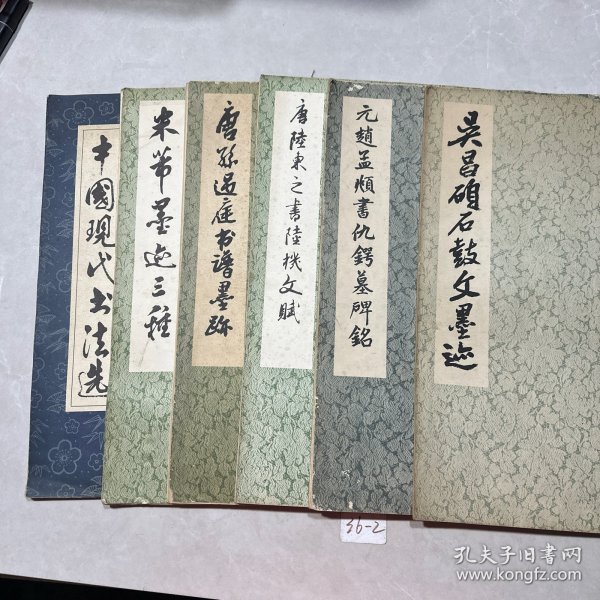 中國現代书法选
米芾墨迹三種
唐孫过庭书谱墨跡
唐陸柬之書陸機文賦
元趙孟頫書仇鍔墓碑銘
吴昌碩石鼓文墨迹
S6-2
孔夫子旧書网
www.kongfz.com